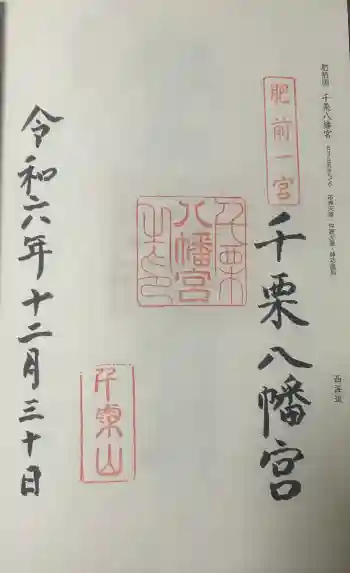 肥前国 千栗八幡宮
西海道
肥前一宮
千栗八幡宮
千栗八幡宮
千栗山
令和六年十二月三十日